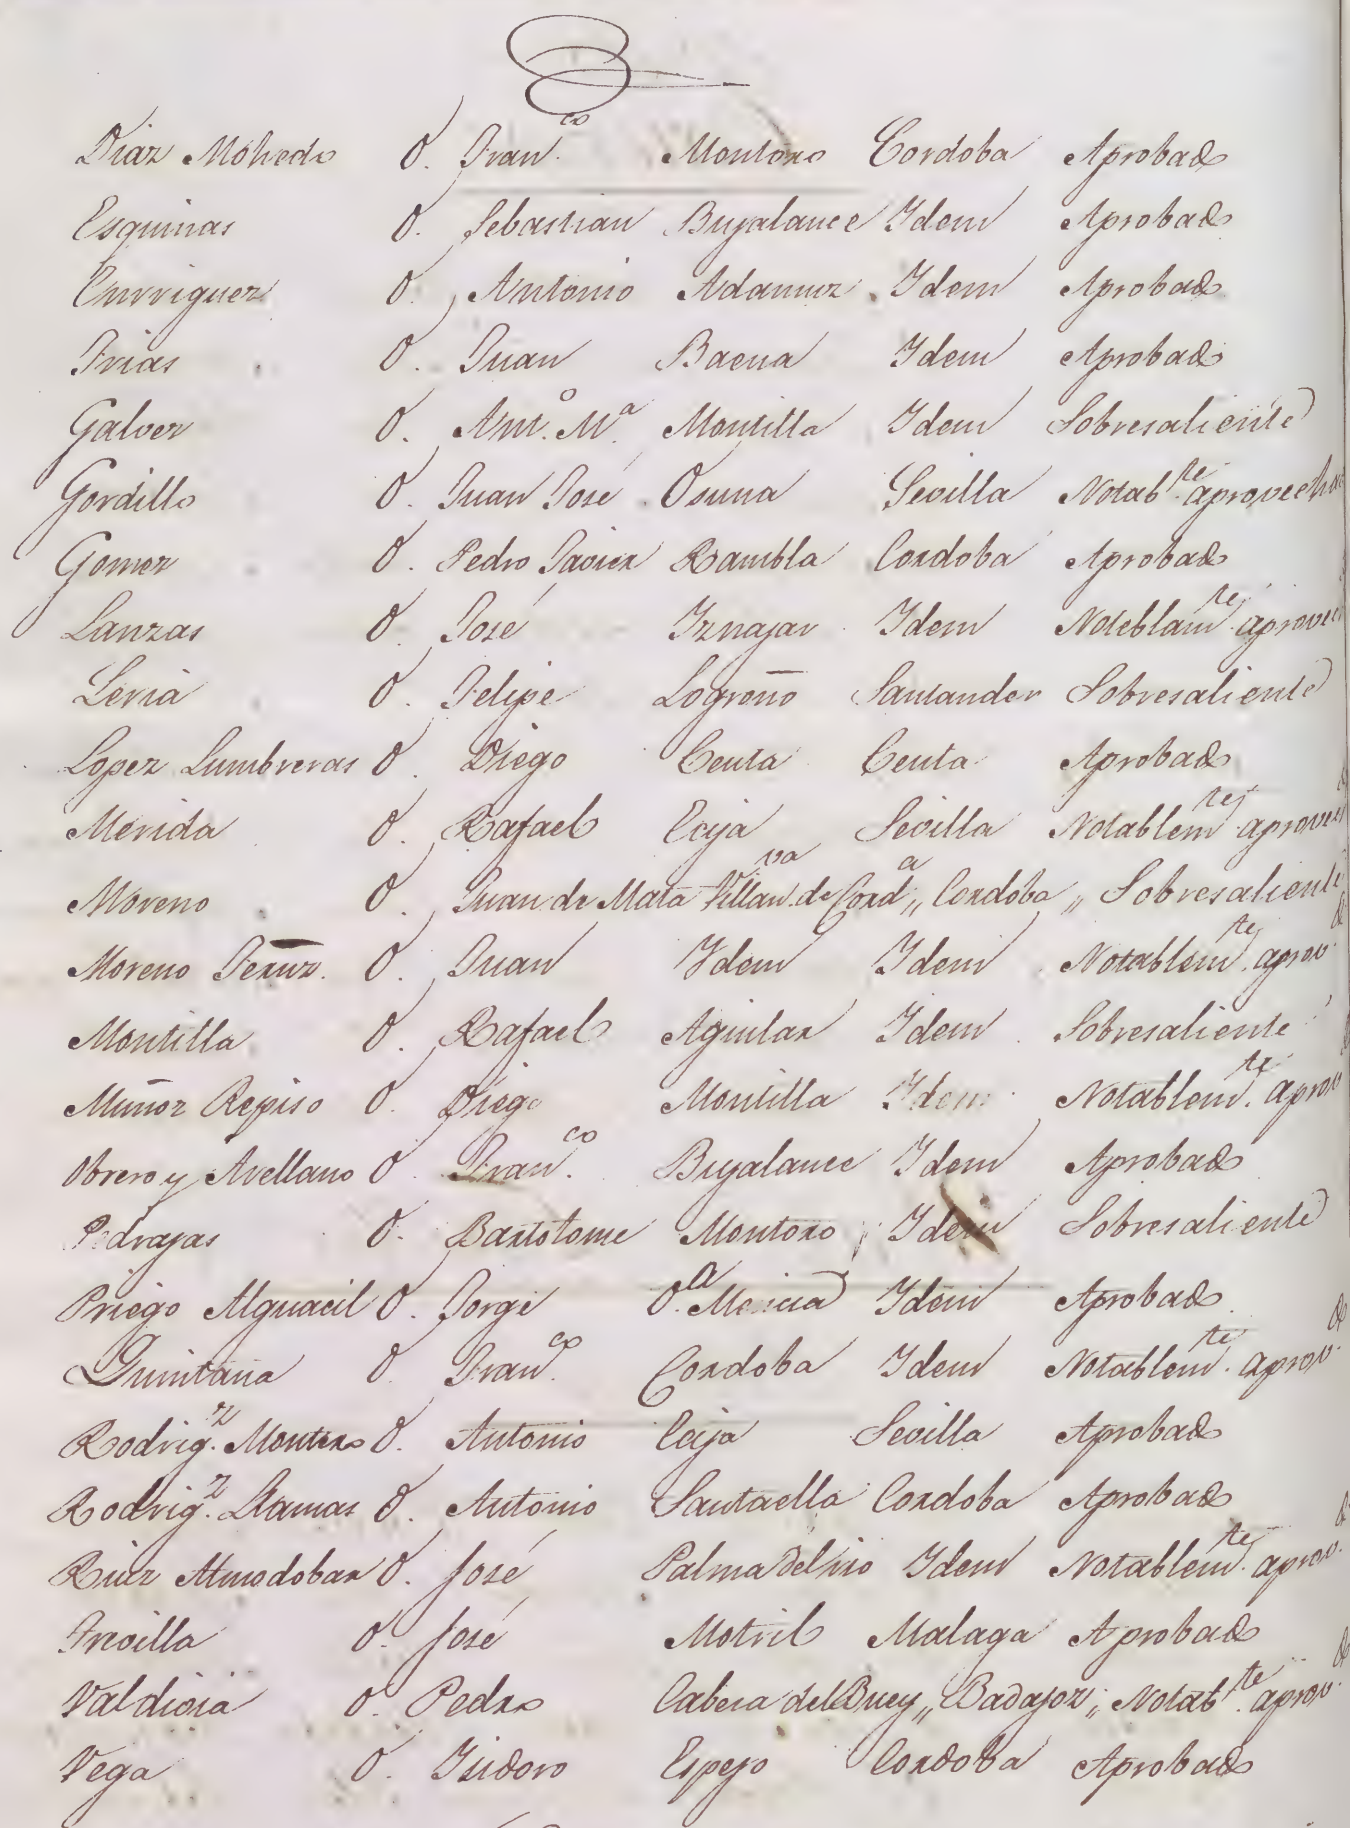 Diaz Mohedo D. Fran.co Montoro Cordoba Aprobado
Esquinas D. Sebastian Bujalance Idem Aprobado
Enrriquez D. Antonio Adamuz Idem Aprobado
Frias D. Juan Baena Idem Aprobado
Galvez D. Ant.o M.a Montilla Idem Sobresaliente
Gordillo D. Juan José Osuna Sevilla Notab.te aprovechado
Gomez D. Pedro Javier Rambla Cordoba Aprobado
Lanzas D. José Iznajar Idem Noteblam.te aprovech
Leria D. Felipe Logroño Santander Sobresaliente
Lopez Lumbreras D. Diego Ceuta Ceuta Aprobado
Merida D. Rafael Ecija Sevilla Notablem.te aprovech
Moreno D. Juan de Mata Villan.va de Cord.a „ Cordoba „ Sobresaliente
Moreno D. Juan Idem Idem Notablem.te aprov.do
Montilla D. Rafael Aguilar Idem Sobresaliente
Muñoz Repiso D. Diego Montilla Idem Notablem.te aprov
Obrero y Avellano D. Fran.co Bujalance Idem Aprobado
Pedrajas D. Bartolome Montoro Idem Sobresaliente
Priego Alguacil D. Jorge D.a Mencia Idem Aprobado
Quintana D. Fran.co Cordoba Idem Notablem.te aprov.do
Rodrig.z Montero D. Antonio Ecija Sevilla Aprobado
Rodrig.z Llamas D. Antonio Santaella Cordoba Aprobado
Ruiz Almodobar D. José Palma del rio Idem Notablem.te aprov.do
Trevilla D. José Motril Malaga Aprobado
Valdivia D. Pedro Cabeza del Buey „ Badajoz „ Notab.te aprov.do
Vega D. Isidoro Espejo Cordoba Aprobado